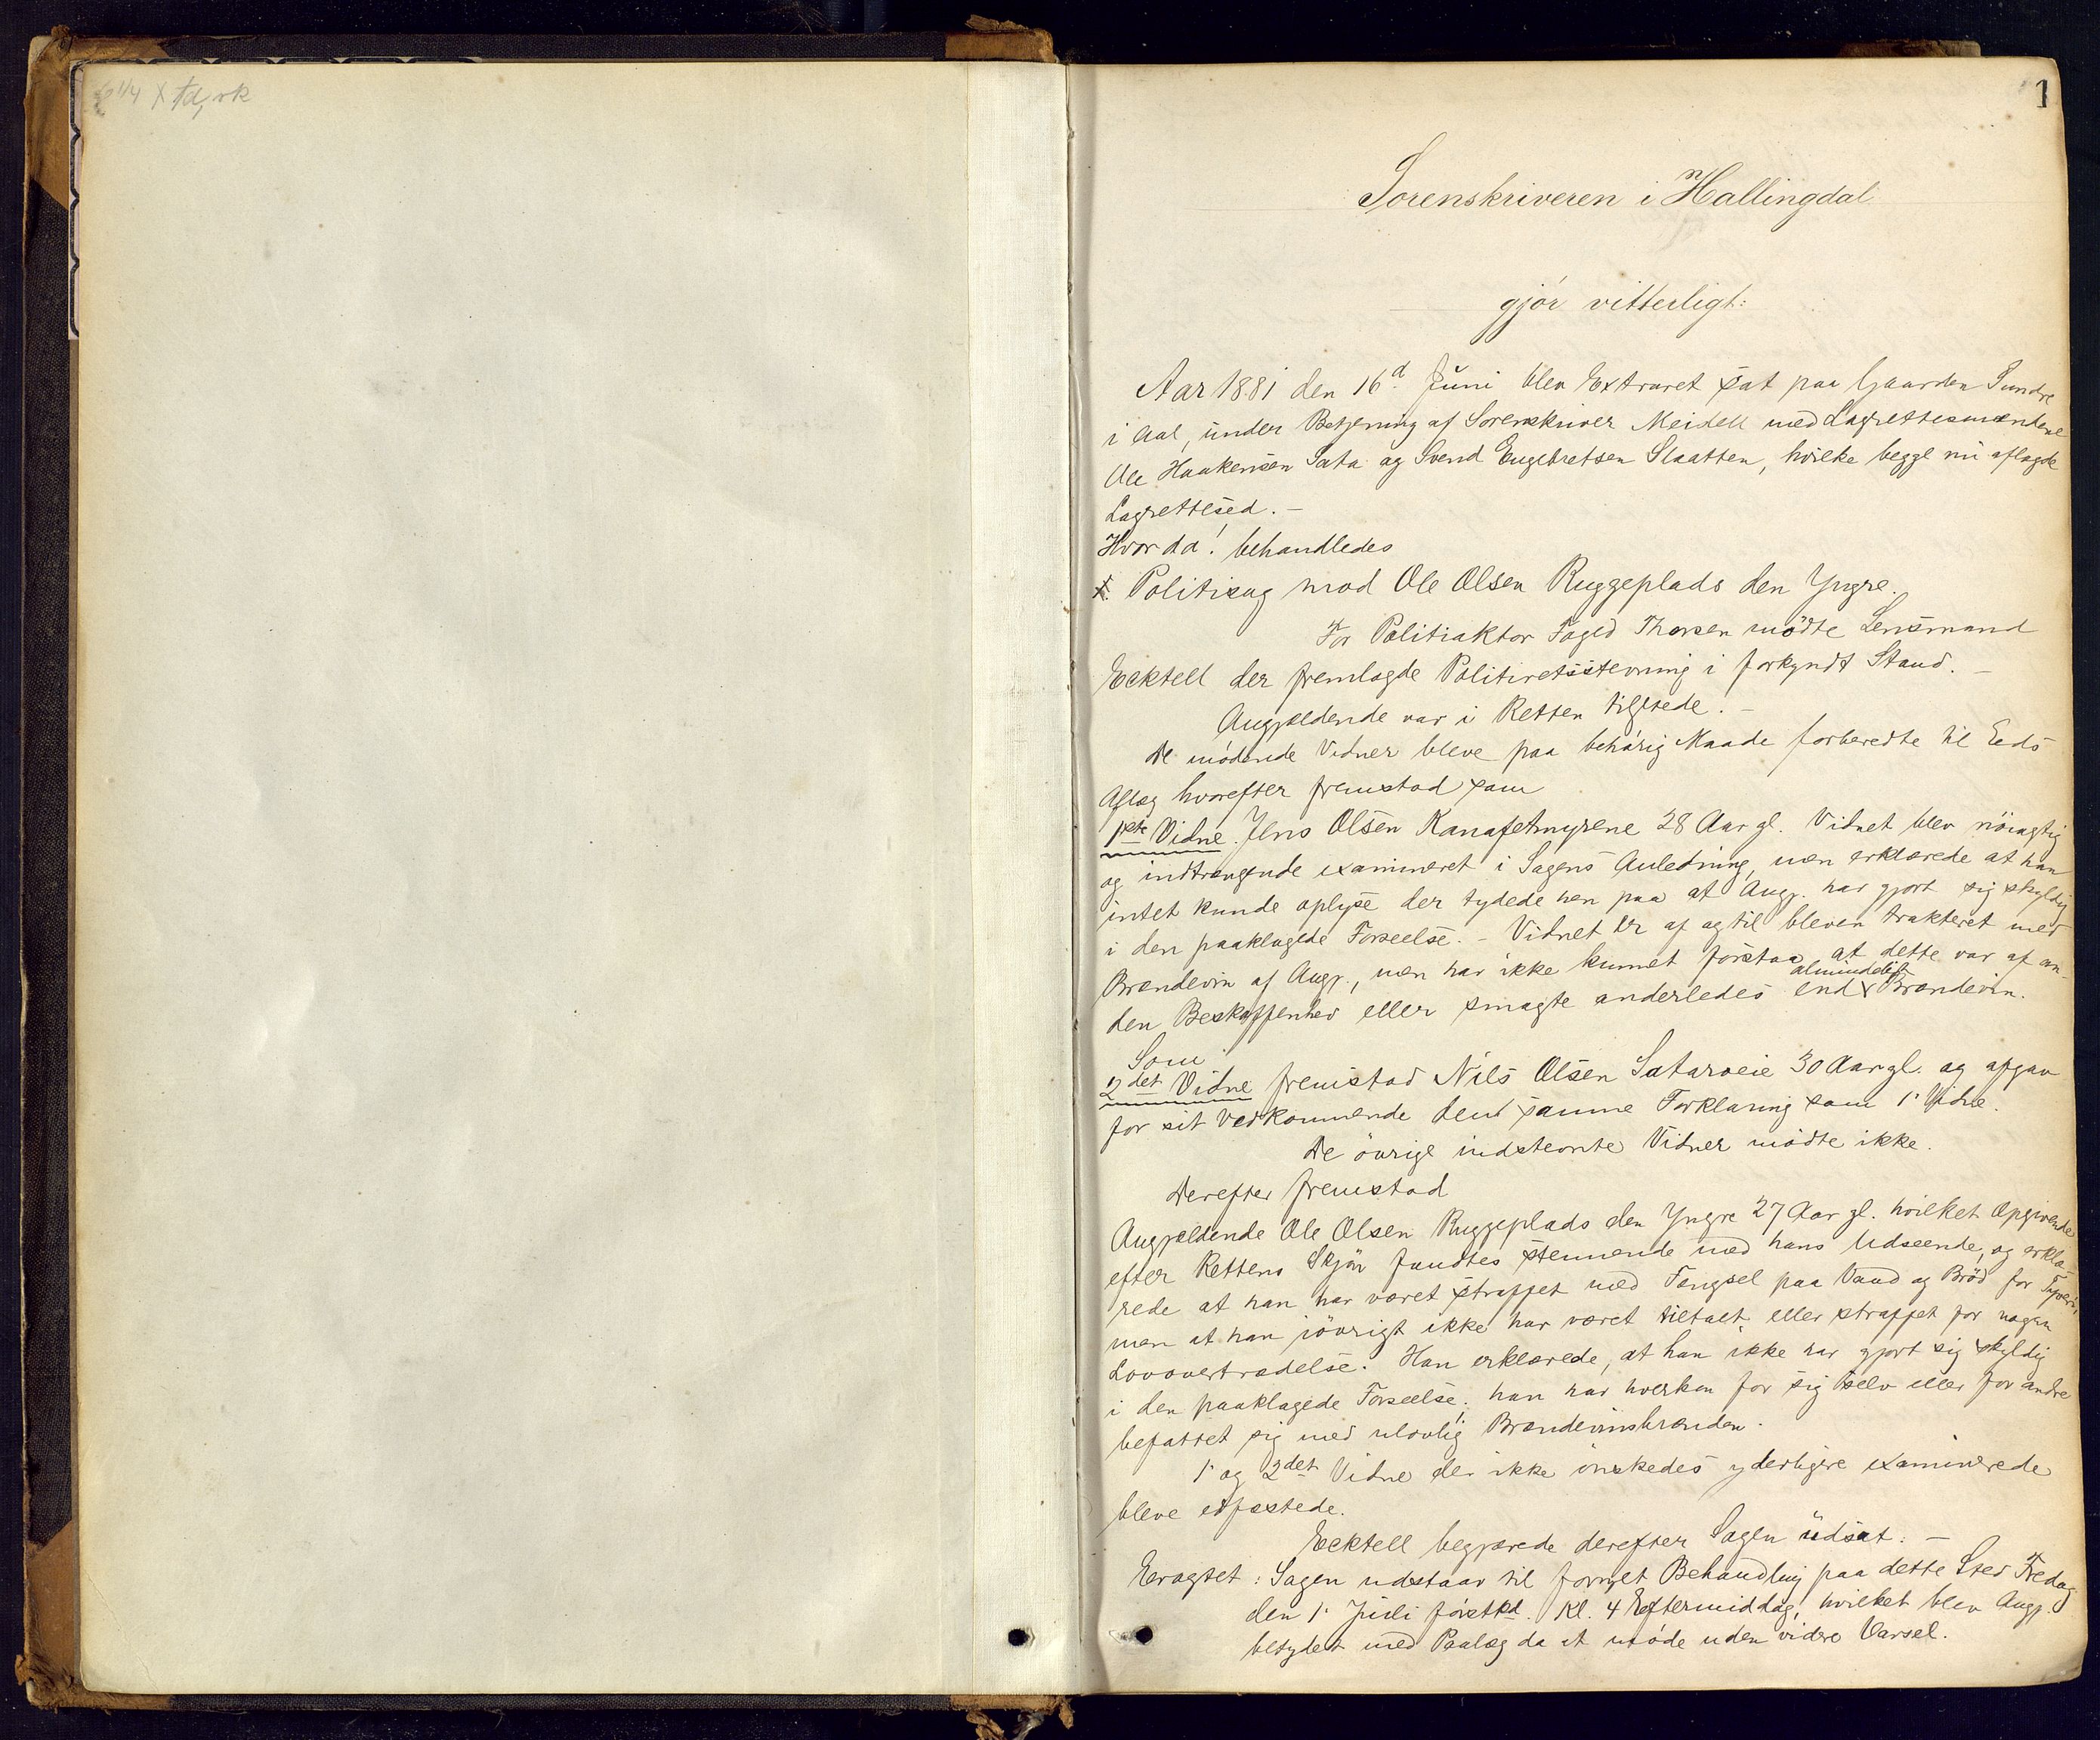 1
Sorenskriveren i Hallingdal
gjör vitterligt:
Aar 1881 den 16d Juni blev Extraret sat paa Gaarden Sundre
i Aal, under Betjening af Sorenskriver Meidell med Lagrettesmændene
Ole Haakensen Sata og Svend Engebretsen Slaatten, hvilke begge nu aflagde
Lagrettesed. –
Hvor da! behandledes
Politisag mod Ole Olsen Ruggeplads den Yngre.
For Politiaktor Foged Thorsen mödte Lensmand
Ecktell der fremlagde Politiretsstevning i forkyndt Stand. –
Angjældende var i Retten tilstede. –
De mödende Vidner bleve paa behörig Maade forberedte til Eeds
Aflæg hvorefter fremstod som
1ste Vidne. Jens Olsen Kanafetmyrene 28 Aar gl. Vidnet blev nöiagtig
og indtrængende examineret i Sagens Anledning, men erklærede at han
intet kunde oplyse der tydede hen paa at Angj. har gjort sig skyldig
i den paaklagede Forseelse. – Vidnet er af og til bleven trakteret med
Brændevin af Angj., men har ikke kunnet forstaa at dette var af an-
den Beskaffenhed eller smagte anderledes end almindeligt Brændevin.
Som
2det Vidne fremstod Nils Olsen Sataroeie 30 Aar gl. og afgav
for sit Vedkommende den samme Forklaring som 1' Vidne.
De övrige indstevnte Vidner mödte ikke.
Derefter fremstod
Angjældende Ole Olsen Ruggeplads den Yngre 27 Aar gl. hvilket Opgivende
efter Rettens Skjön fandtes stemmende med hans Udseende, og erklæ-
rede at han har været straffet med Fængsel paa Vand og Bröd for Tyveri,
men at han iövrigt ikke har været tiltalt eller straffet for nogen
Lovovertrædelse. Han erklærede, at han ikke har gjort sig skyldig
i den paaklagede Forseelse; han har hverken for sig selv eller for andre
befattet sig med ulovlig Brændevinsbrænden.
1' og 2det Vidne der ikke önskedes yderligere examinerede
bleve edfæstede.
Ecktell begjærede derefter Sagen udsat. –
Eragtet: Sagen udstaar til fornyet Behandling paa dette Sted Fredag
den 1' Juli förstkd. Kl. 4 Eftermiddag, hvilket blev Angj.
betydet med Paalæg da at möde uden videre Varsel.